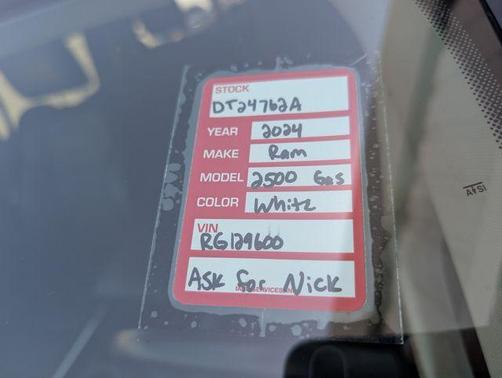 STOCK
DT24762A
YEAR 2024
MAKE Ram
MODEL 2500 Gas
COLOR White
VIN
RG129600
Ask for Nick